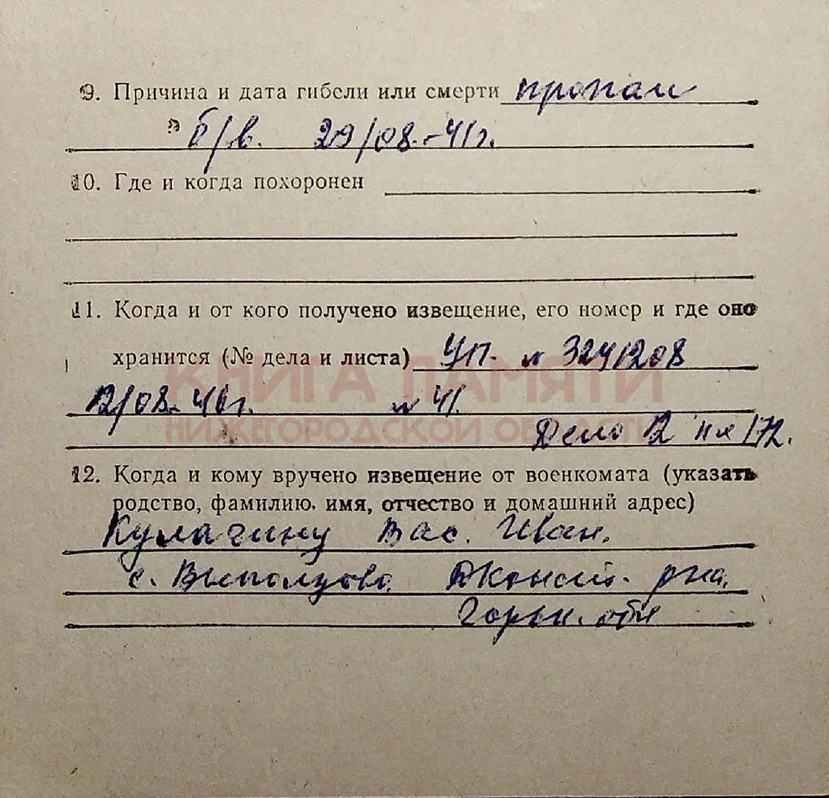 9. Причина и дата гибели или смерти пропал
б/в. 29/08.-41г.
10. Где и когда похоронен
11. Когда и от кого получено извещение, его номер и где оно
хранится (№ дела и листа) УП. н 3241208
КНИГА ПАМЯТИ
12/08-46г. н 41.
НИЖЕГОРОДСКОЙ ОБЛАСТИ
Дело 12 172.
12. Когда и кому вручено извещение от военкомата (указать
родство, фамилию. имя, отчество и домашний адрес)
Кулагину Вас. Иван.
с. Выползово. р-на.
Горьк. обл